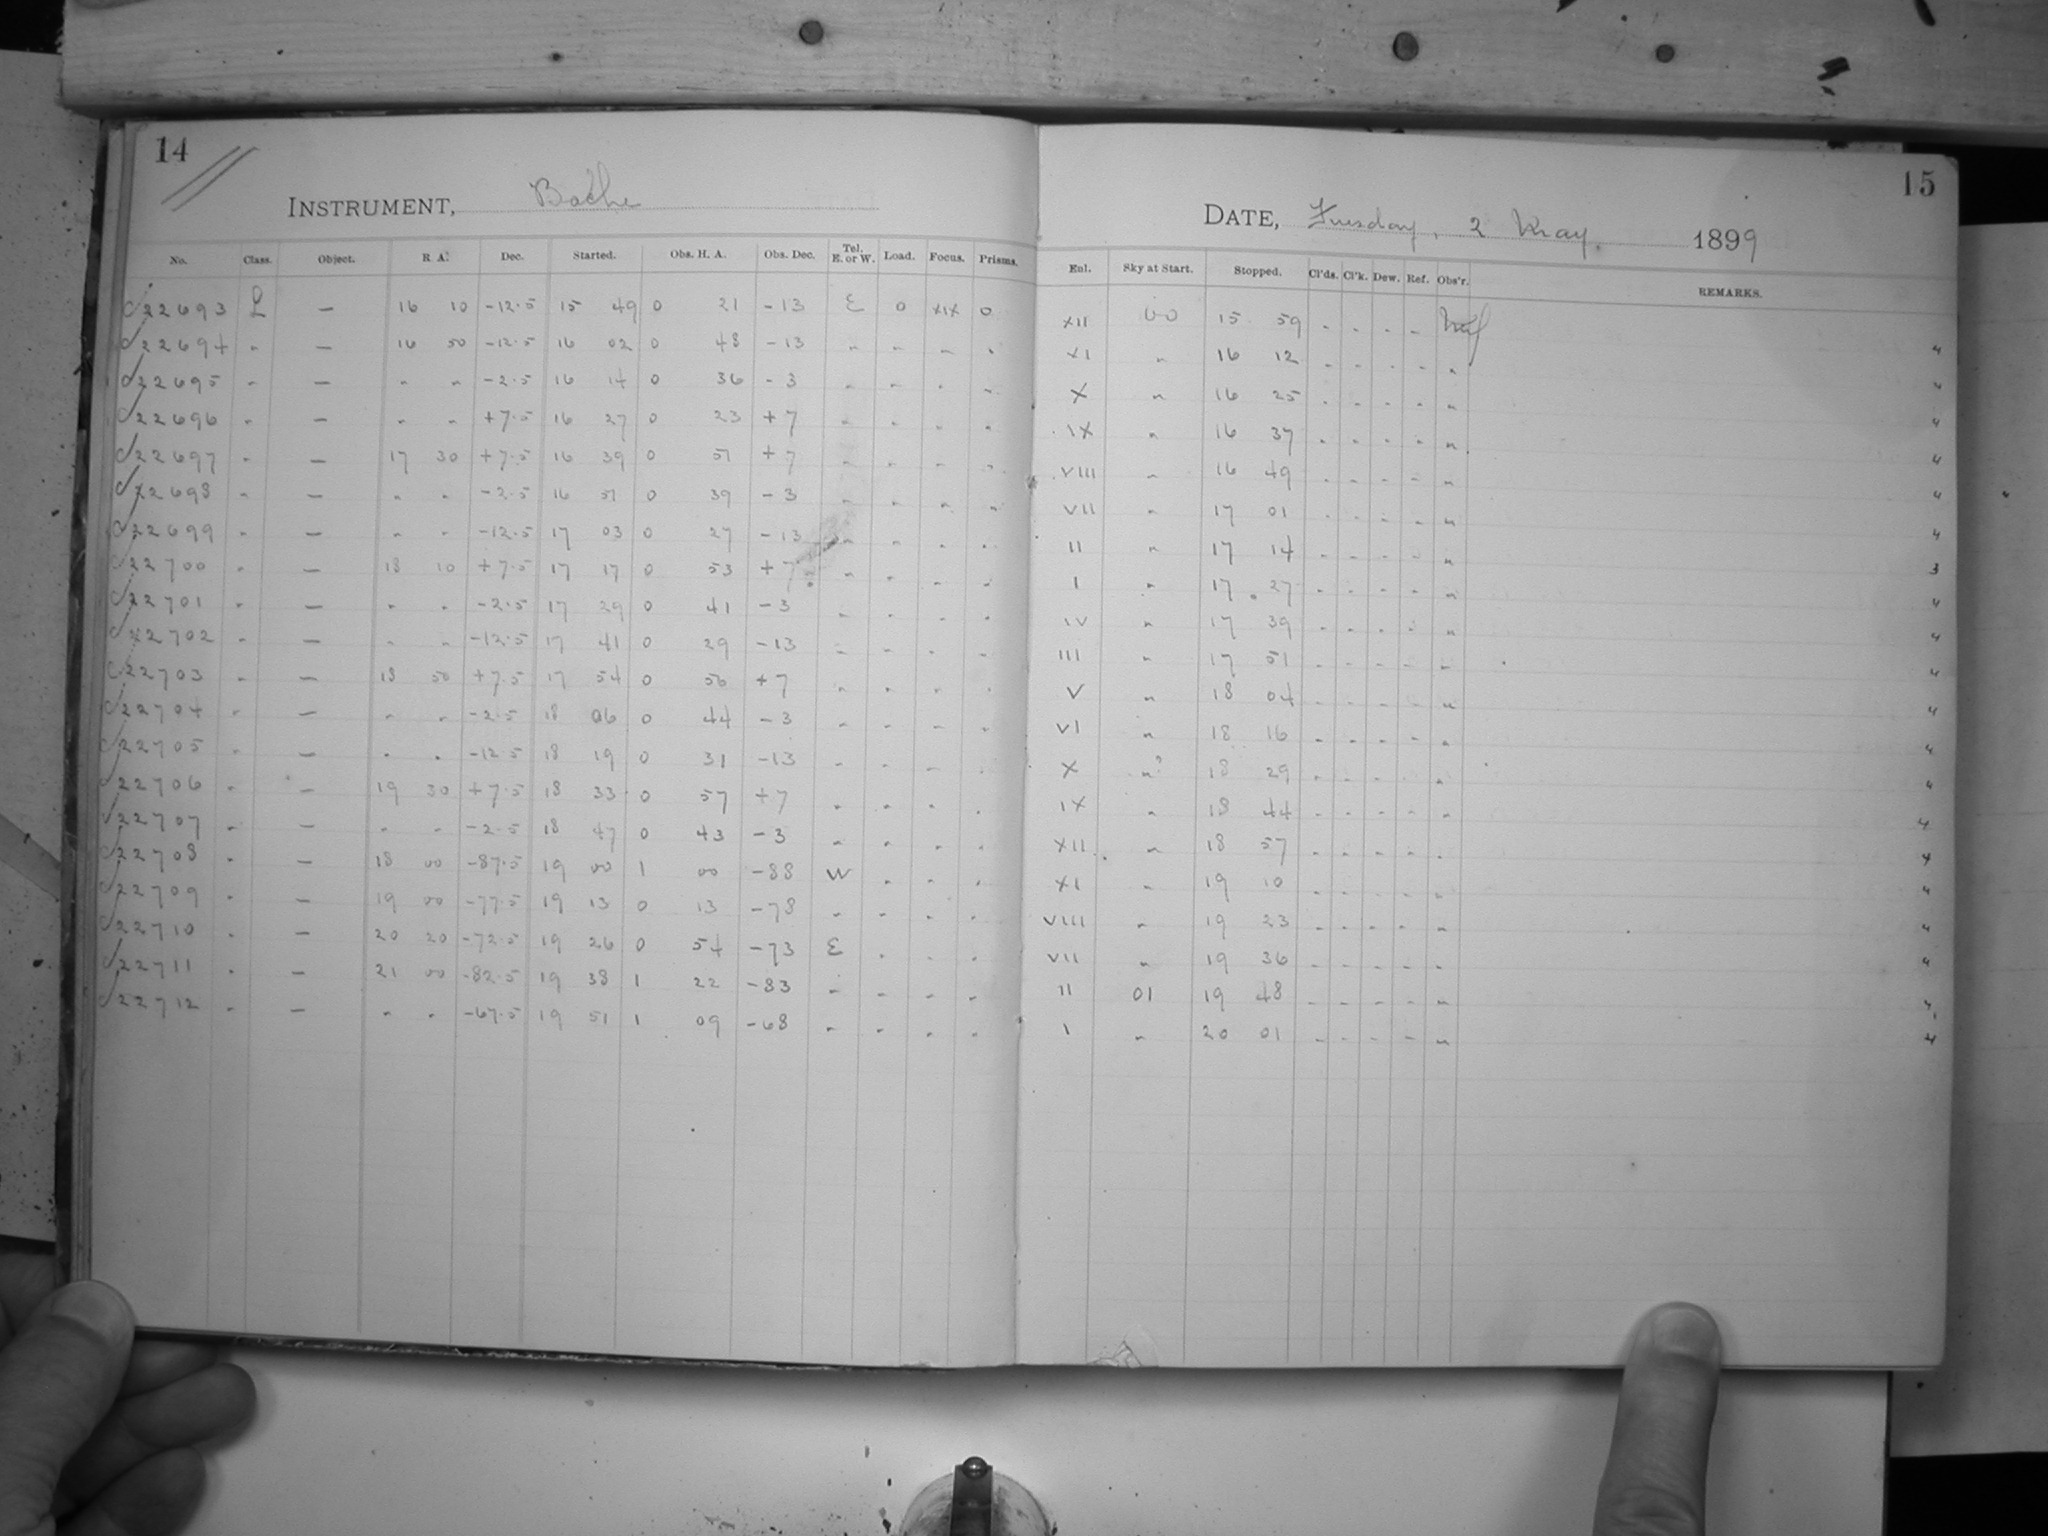 14
INSTRUMENT, Bache
No. Class. Object. R. A. Dec. Started. Obs. H. A. Obs. Dec. Tel. E. or W. Load. Focus. Prisms.
22693 L — 16 10 -12.5 15 49 0 21 -13 E 0 XIX 0
22694 " — 16 50 -12.5 16 02 0 48 -13 " " " "
22695 " — " " -2.5 16 14 0 36 -3 " " " "
22696 " — " " +7.5 16 27 0 23 +7 " " " "
22697 " — 17 30 +7.5 16 39 0 51 +7 " " " "
22698 " — " " -2.5 16 51 0 39 -3 " " " "
22699 " — " " -12.5 17 03 0 27 -13 " " " "
22700 " — 18 10 +7.5 17 17 0 53 +7 " " " "
22701 " — " " -2.5 17 29 0 41 -3 " " " "
22702 " — " " -12.5 17 41 0 29 -13 " " " "
22703 " — 18 50 +7.5 17 54 0 56 +7 " " " "
22704 " — " " -2.5 18 06 0 44 -3 " " " "
22705 " — " " -12.5 18 19 0 31 -13 " " " "
22706 " — 19 30 +7.5 18 33 0 57 +7 " " " "
22707 " — " " -2.5 18 47 0 43 -3 " " " "
22708 " — 18 00 -87.5 19 00 1 00 -88 W " " "
22709 " — 19 00 -77.5 19 13 0 13 -78 " " " "
22710 " — 20 20 -72.5 19 26 0 54 -73 E " " "
22711 " — 21 00 -82.5 19 38 1 22 -83 " " " "
22712 " — " " -67.5 19 51 1 09 -68 " " " "
15
DATE, Tuesday, 2 May. 1899
Enl. Sky at Start. Stopped. Cl'ds. Cl'k. Dew. Ref. Obs'r. REMARKS.
XII 00 15 59 - - - -
XI " 16 12 - - - - " 4
X " 16 25 - - - - " 4
IX " 16 37 - - - - " 4
VIII " 16 49 - - - - " 4
VII " 17 01 - - - - " 4
II " 17 14 - - - - " 4
I " 17 27 - - - - " 3
IV " 17 39 - - - - " 4
III " 17 51 - - - - " 4
V " 18 04 - - - - " 4
VI " 18 16 - - - - " 4
X "? 18 29 - - - - " 4
IX " 18 44 - - - - " 4
XII " 18 57 - - - - " 4
XI " 19 10 - - - - " 4
VIII " 19 23 - - - - " 4
VII " 19 36 - - - - " 4
II 01 19 48 - - - - " 4
I " 20 01 - - - - " 4